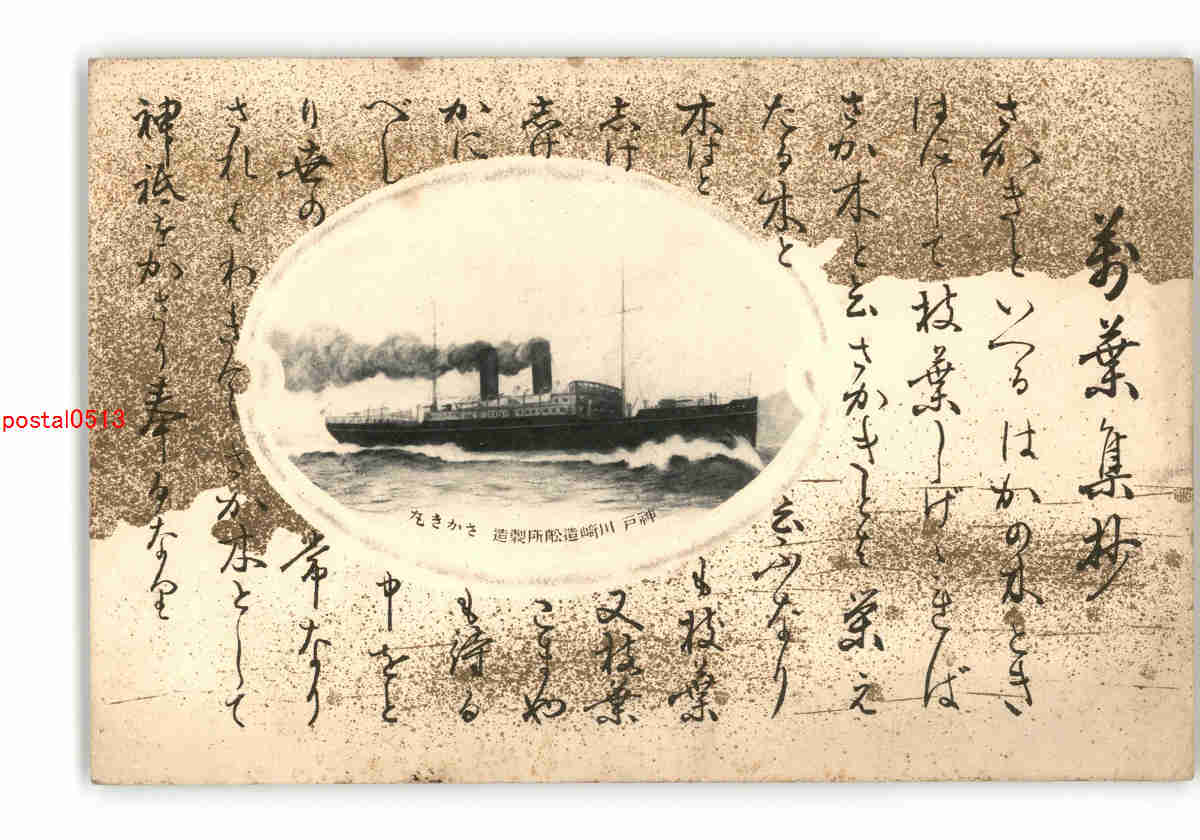 萬葉集抄
さかきといへるはかの木とき
はにして枝葉しげゝきば
さか木と云さかきとは栄え
たる木と云ふなり
木はと も枝葉
志げ 又枝葉
志げ こまや
かに も得る
べし 中をと
り世の 常なり
さればわき さか木として
神祇をかざり奉るなり
神戸川崎造船所製造 さかき丸
postal0513